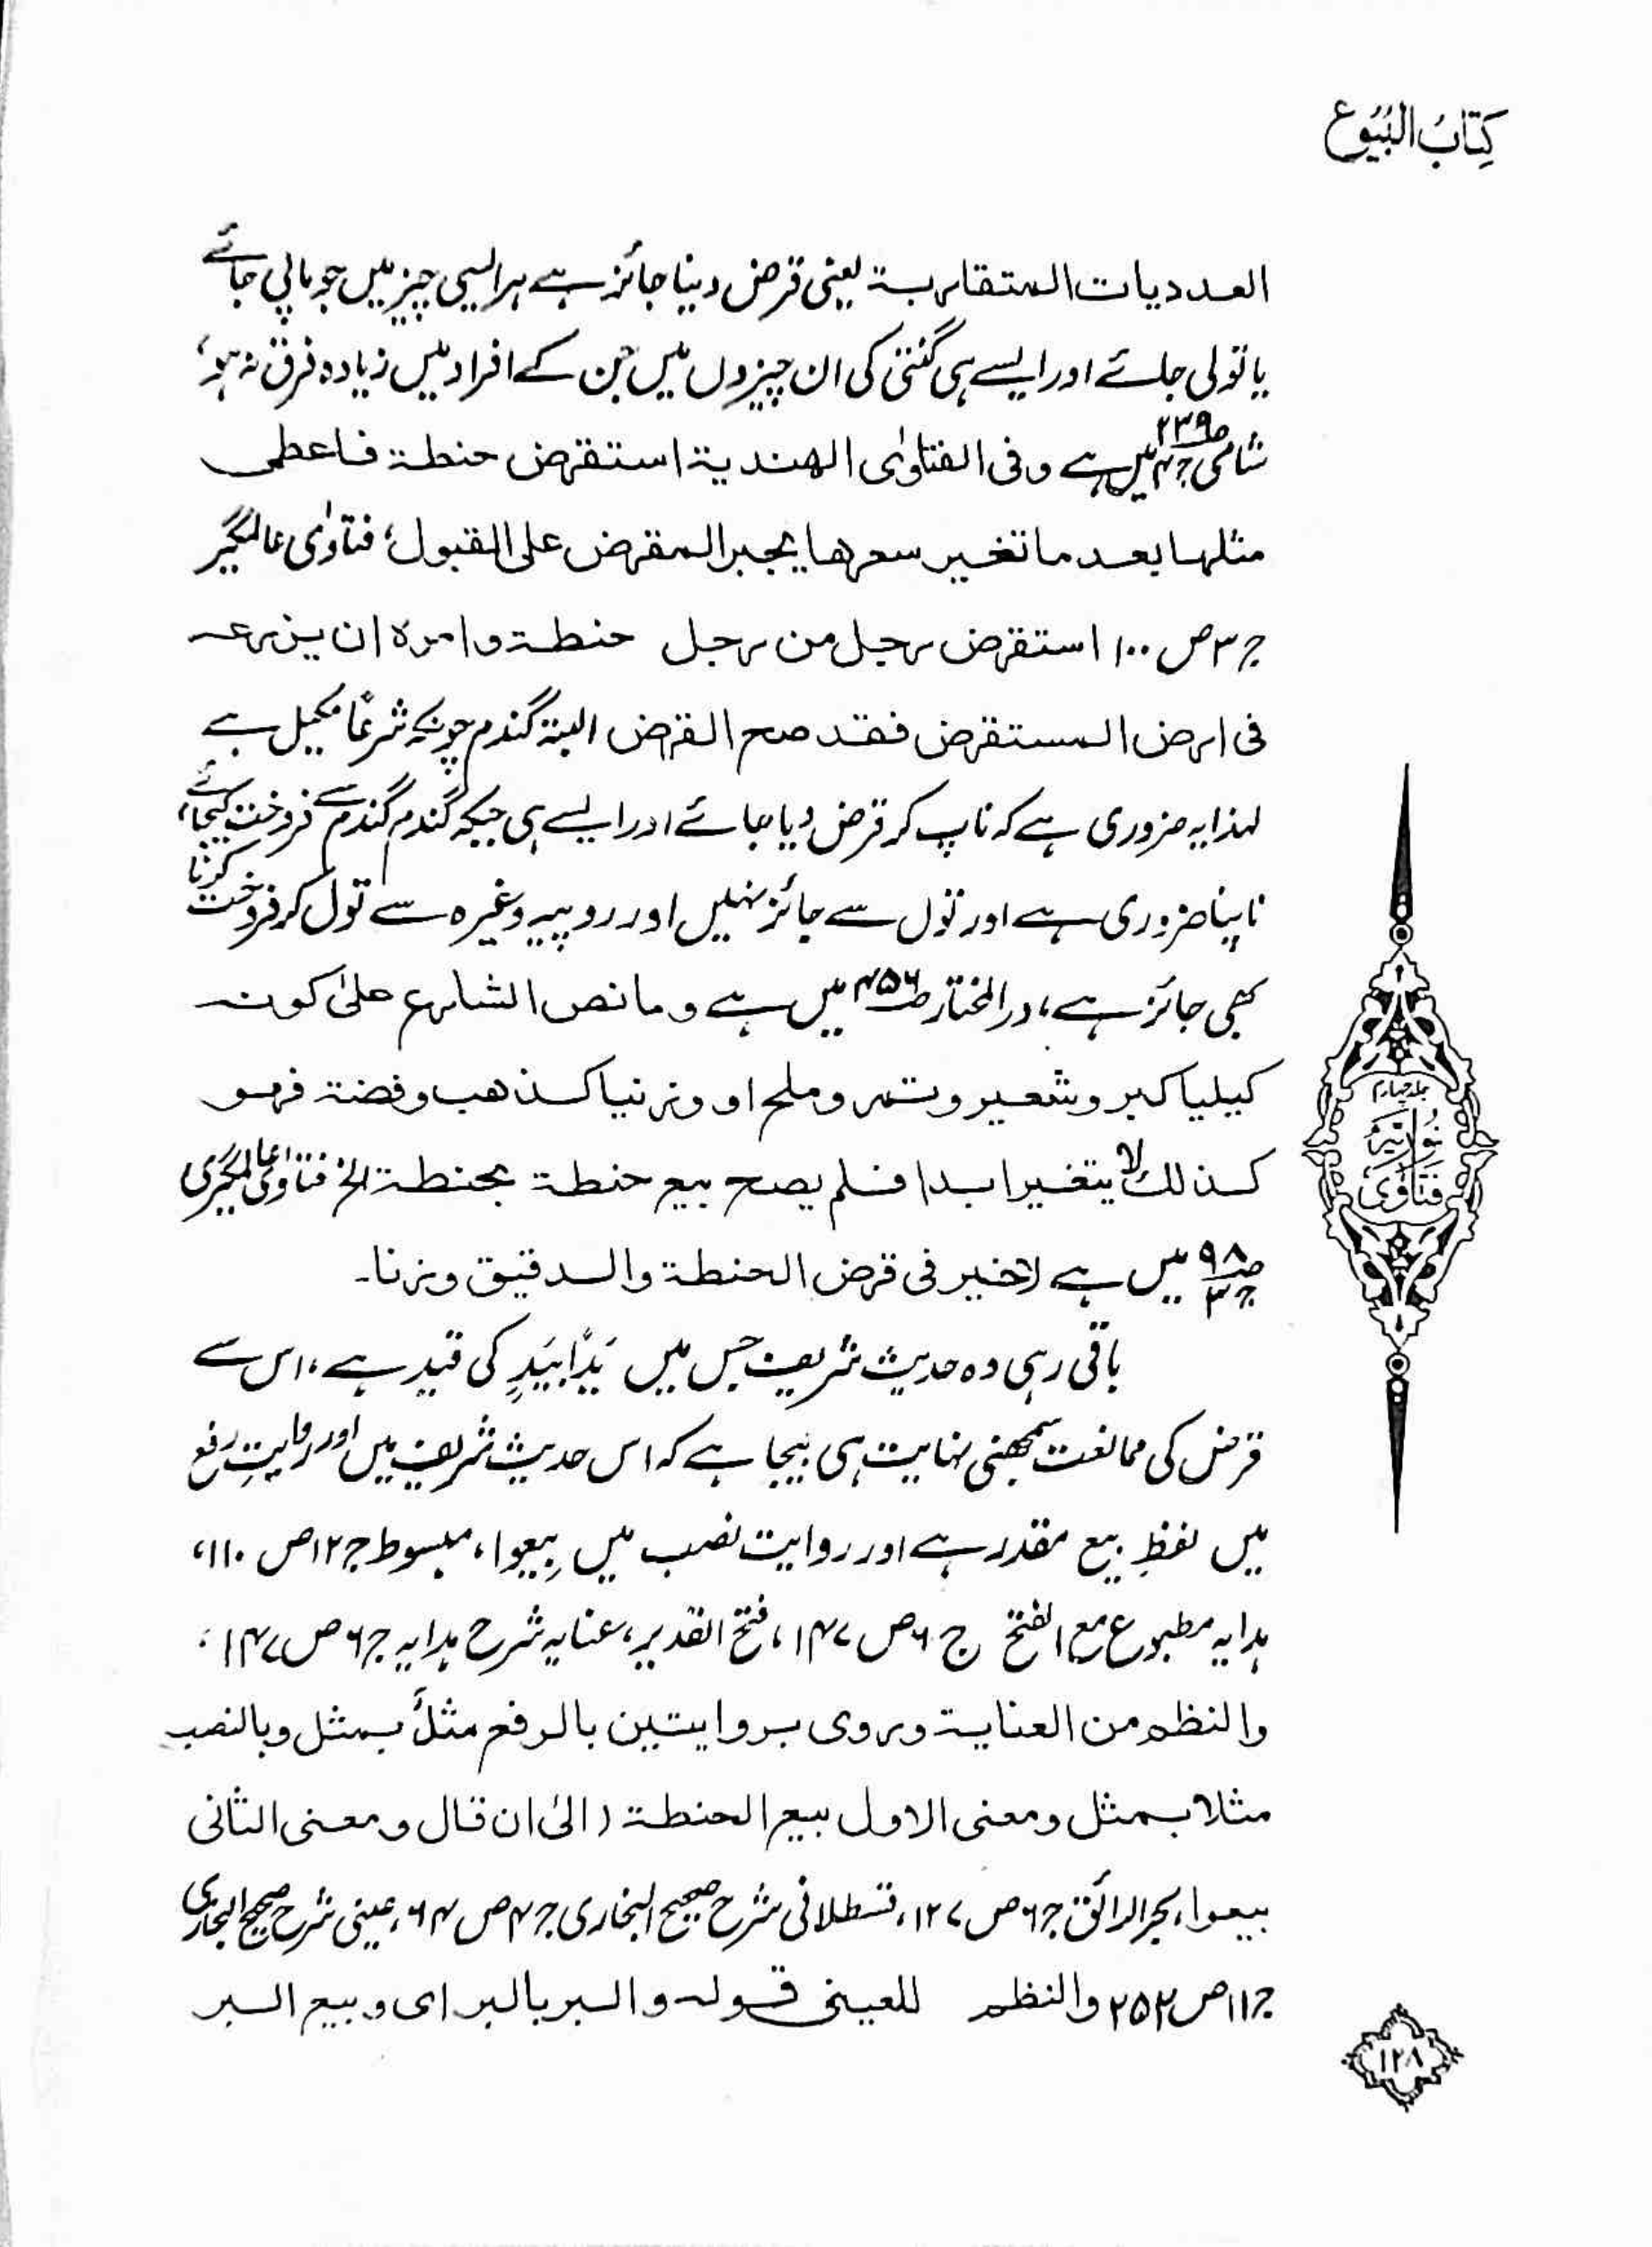 كِتَابُ الْبُيُوع
العدديات المتقاربة یعنی قرض دینا جائز ہے ہر ایسی چیز میں جو ماپی جائے
یا تولی جائے اور ایسے ہی گنتی کی ان چیزوں میں جن کے افراد میں زیادہ فرق نہ ہو،
شامی ج۴ ص۲۳۹ میں ہے وفی الفتاوٰی الهندیة استقرض حنطة فاعطی
مثلها بعد ما تغیر سعرها یجبر المقرض علی القبول، فتاوٰی عالمگیر
ج ۳ ص ۱۰۰ استقرض رجل من رجل حنطة وامرہ ان یزرعه
فی ارض المستقرض فقد صح القرض البتہ گندم چونکہ شرعًا مکیل ہے
لہذا یہ ضروری ہے کہ ناپ کر قرض دیا جائے اور ایسے ہی جبکہ گندم گندم سے فروخت کیجائے،
ناپنا ضروری ہے اور تول سے جائز نہیں اور روپیہ وغیرہ سے تول کر فروخت کرنا
بھی جائز ہے، درالمختار ص۴۵۶ میں ہے وما نص الشارع علیٰ کونه
کیلیا کبر وشعیر وتمر وملح او وزنیا کذهب وفضة فهو
کذلك لا یتغیر ابدا فلم یصح بیع حنطة بحنطة الخ فتاوٰی عالمگیری
ص۹۸ ج۳ میں ہے لاخیر فی قرض الحنطة والدقیق وزنا۔
باقی رہی وہ حدیث شریف جس میں یَدًا بِیَدٍ کی قید ہے، اس سے
قرض کی ممانعت سمجھنی نہایت ہی بیجا ہے کہ اس حدیث شریف میں اور روایتِ رفع
میں لفظِ بیع مقدر ہے اور روایت نصب میں بِیعوا، مبسوط ج ۱۲ ص ۱۱۰،
ہدایہ مطبوع مع الفتح ج ۶ ص ۱۴۷، فتح القدیر، عنایہ شرح ہدایہ ج ۶ ص ۱۴۷،
والنظم من العنایة وروی بروایتین بالرفع مثلٌ بمثل وبالنصب
مثلا بمثل ومعنی الاول بیع الحنطة (الیٰ ان قال ومعنی الثانی
بیعوا، بحر الرائق ج ۶ ص ۱۲۷، قسطلانی شرح صحیح البخاری ج ۴ ص ۶۴، عینی شرح صحیح البخاری
ج ۱۱ ص ۲۵۲ والنظم للعینی قوله والبر بالبر ای وبیع البر
جلد چہارم
نُوْرِیَّہ
فَتَاوٰی
۱۲۸